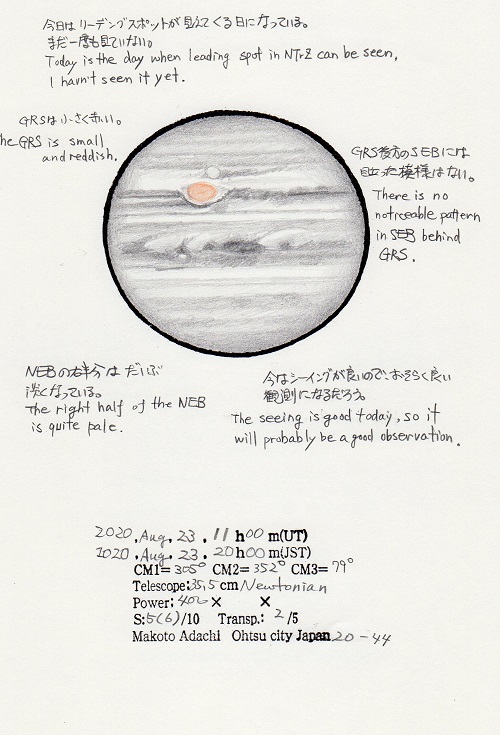 今日はリーディングスポットが見えてくる日になっている。
まだ一度も見ていない。
Today is the day when leading spot in NTrZ can be seen,
I havn't seen it yet.
GRSは小さく赤い。
he GRS is small
and reddish.
GRS後方のSEBには
目立った模様はない。
There is no
notrceable pattern
in SEB behind
GRS.
NEBの右半分はだいぶ
淡くなっている。
The right half of the NEB
is quite pale.
今はシーイングが良いので、おそらく良い
観測になるだろう。
The seeing is good today, so it
will probably be a good observation.
2020, Aug. 23. 11 h00 m(UT)
2020, Aug. 23. 20h00 m(JST)
CM1= 305° CM2= 352° CM3= 79°
Telescope: 35.5 cm Newtonian
Power: 400 × ×
S: 5(6)/10 Transp.: 2 /5
Makoto Adachi Ohtsu city Japan 20-44